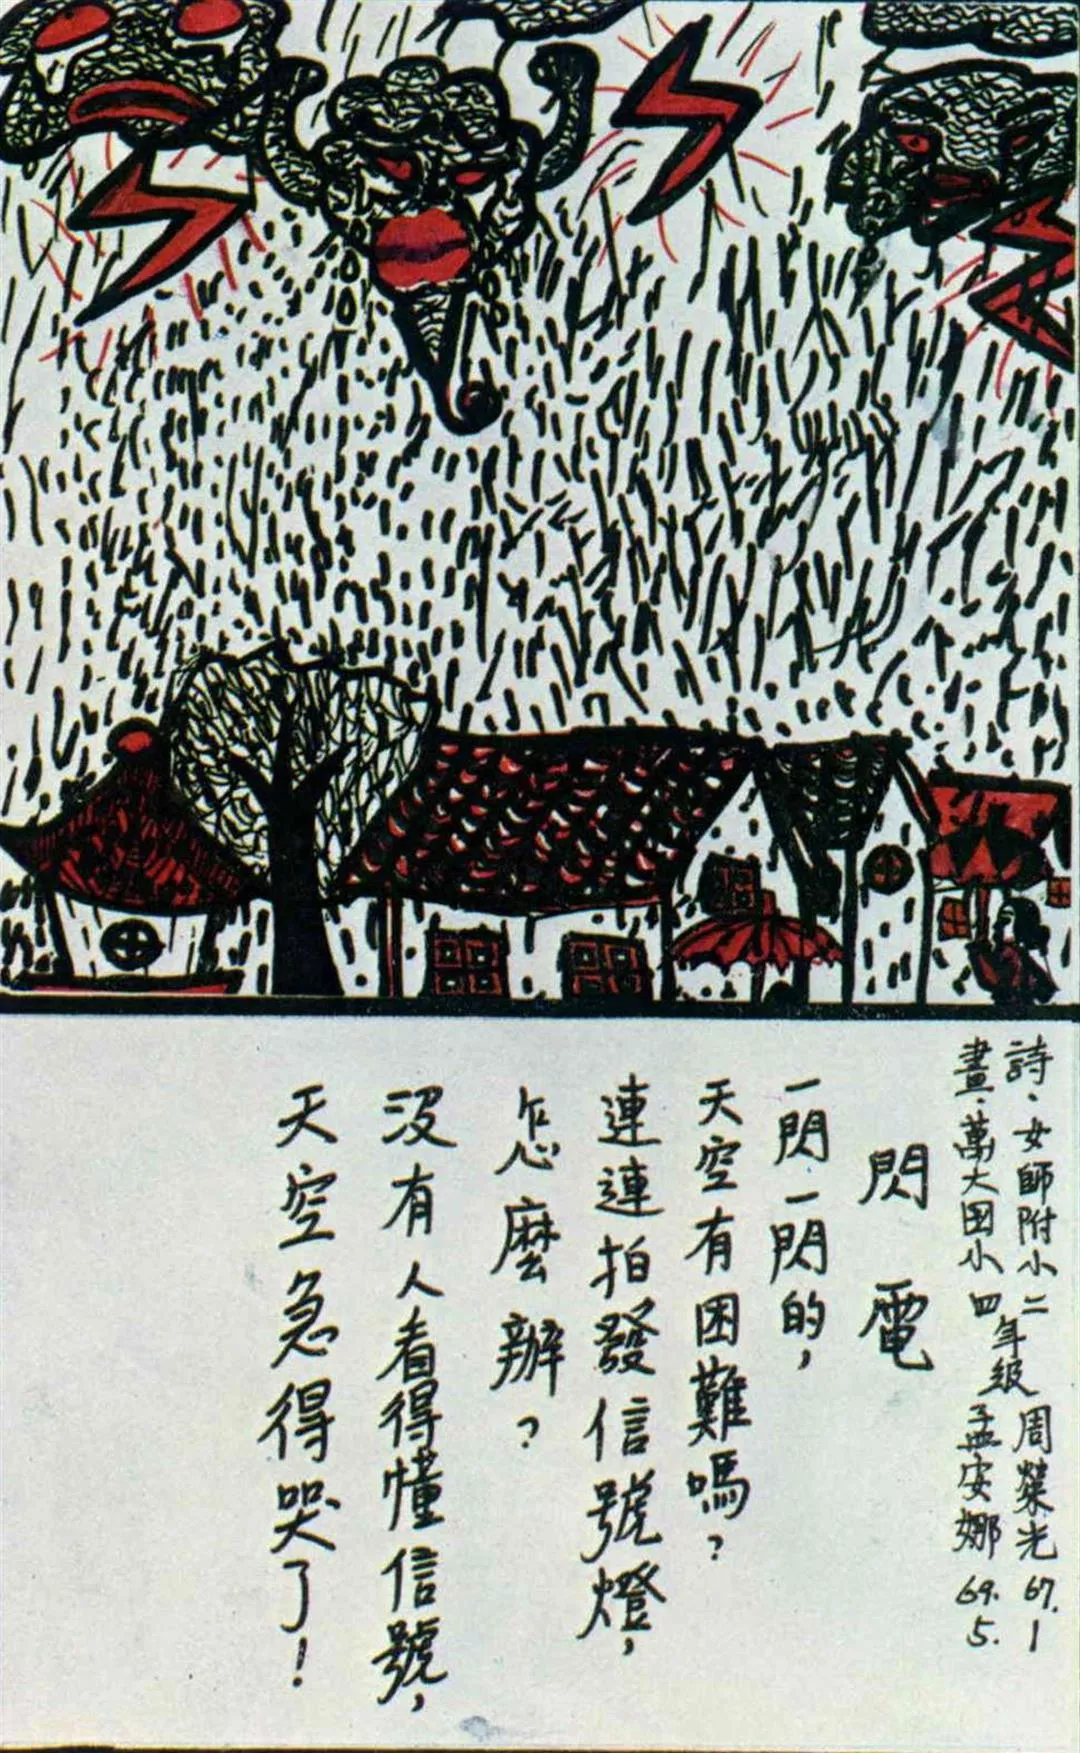 詩·女師附小二年級 周榮光 67.1
畫·萬大国小四年級 孟安娜 69.5.
閃電
一閃一閃的，
天空有困難嗎？
連連拍發信號燈，
怎麼辦？
沒有人看得懂信號，
天空急得哭了！